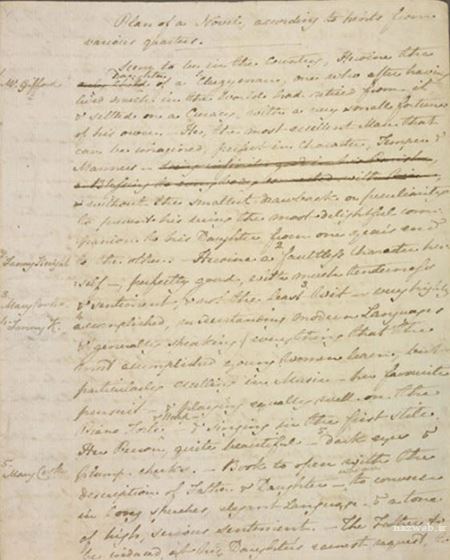 Plan of a Novel, according to hints from
various quarters.
Scene to be in the Country, Heroine the
1 Mr Gifford
Daughter
of a Clergyman, one who after having
lived much in the World had retired from it
& settled on a Curacy, with a very small fortune
of his own.— He, the most excellent Man that
can be imagined, perfect in Character, Temper &
Manners —
& without the smallest drawback or peculiarity
to prevent his being the most delightful com-
panion to his Daughter from one year's end
2 Fanny Knight
to the other.— Heroine a 2 faultless Character her-
self —, perfectly good, with much tenderness
3 Mary Cooke
& sentiment, & not the least 3 Wit — very highly
4 Fanny K.
4 accomplished, understanding modern Languages
& (generally speaking) everything that the
most accomplished young Women learn, but
particularly excelling in Music — her favourite
pursuit — & playing equally well on the
Piano Forte & Harp — & singing in the first stile.
Her Person, quite beautiful — dark eyes &
5 Mary Cooke
plump cheeks.— Book to open with the
description of Father & Daughter — to converse
in long speeches, elegant Language — & a tone
of high, serious sentiment.— The Father to
be induced, at his Daughter's earnest request, to
nazweb.ir